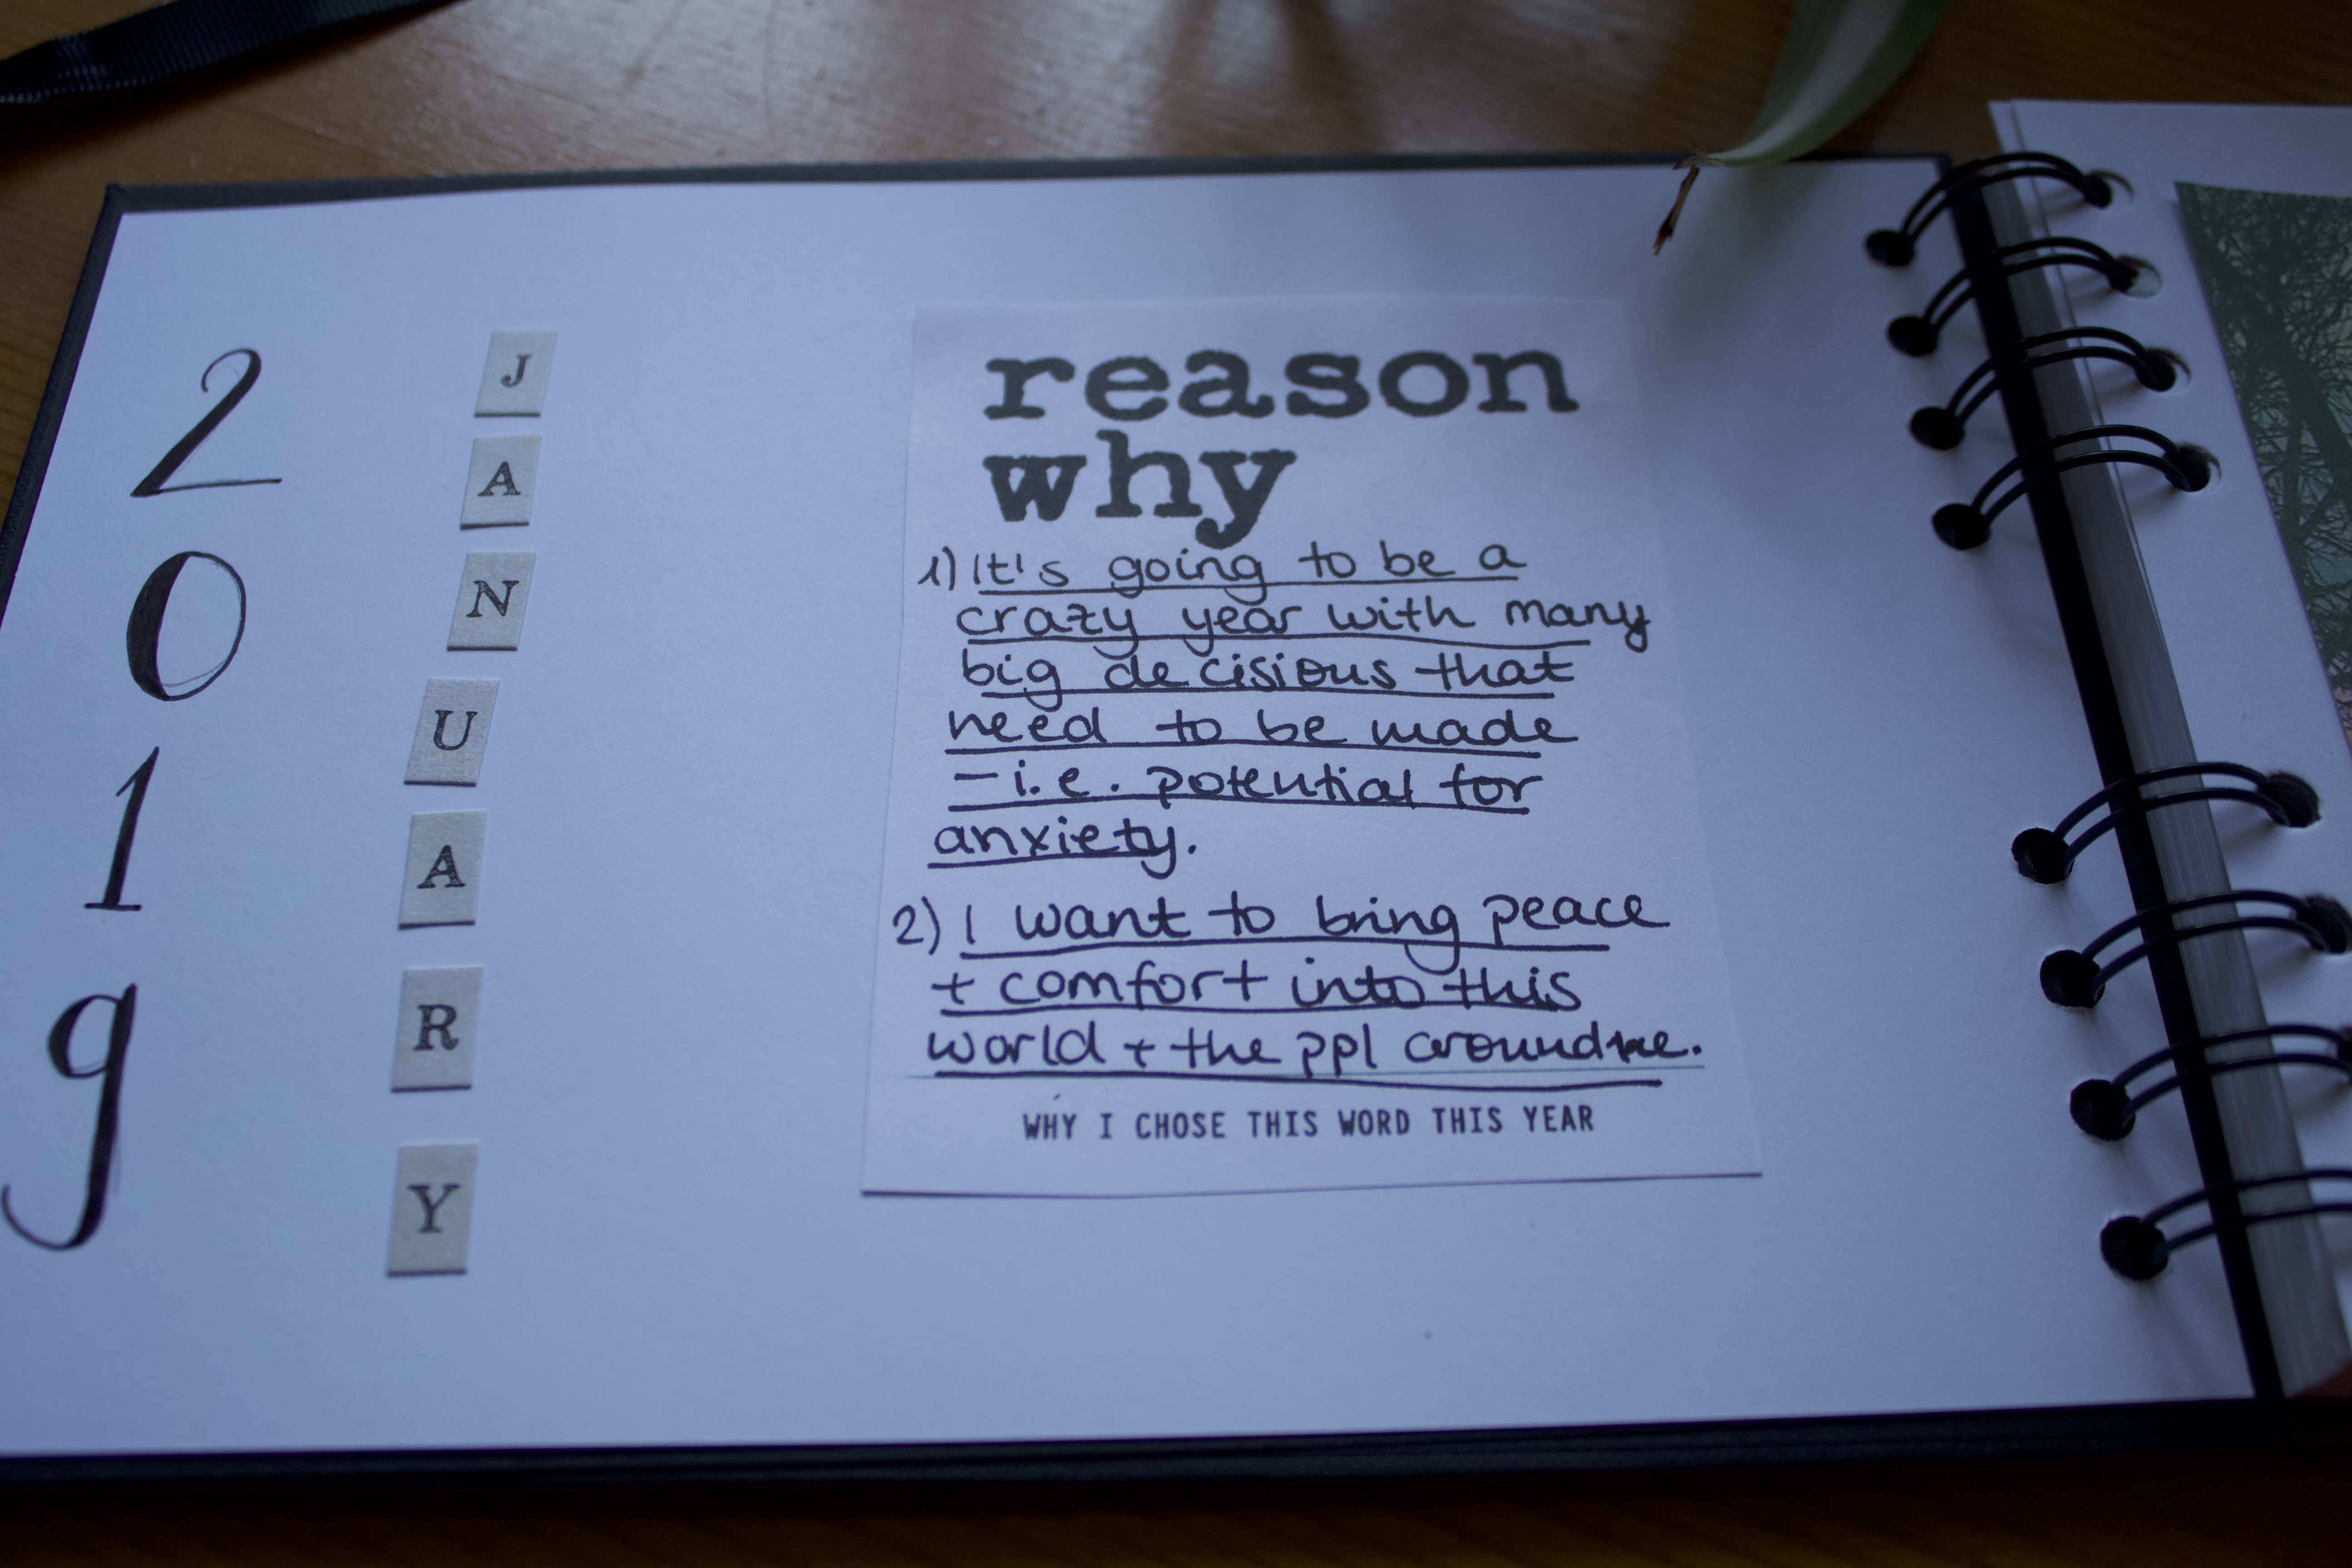 2019
JANUARY
reason
why
1) It's going to be a
crazy year with many
big decisions that
need to be made
- i.e. potential for
anxiety.
2) I want to bring peace
+ comfort into this
world + the ppl around me.
WHY I CHOSE THIS WORD THIS YEAR